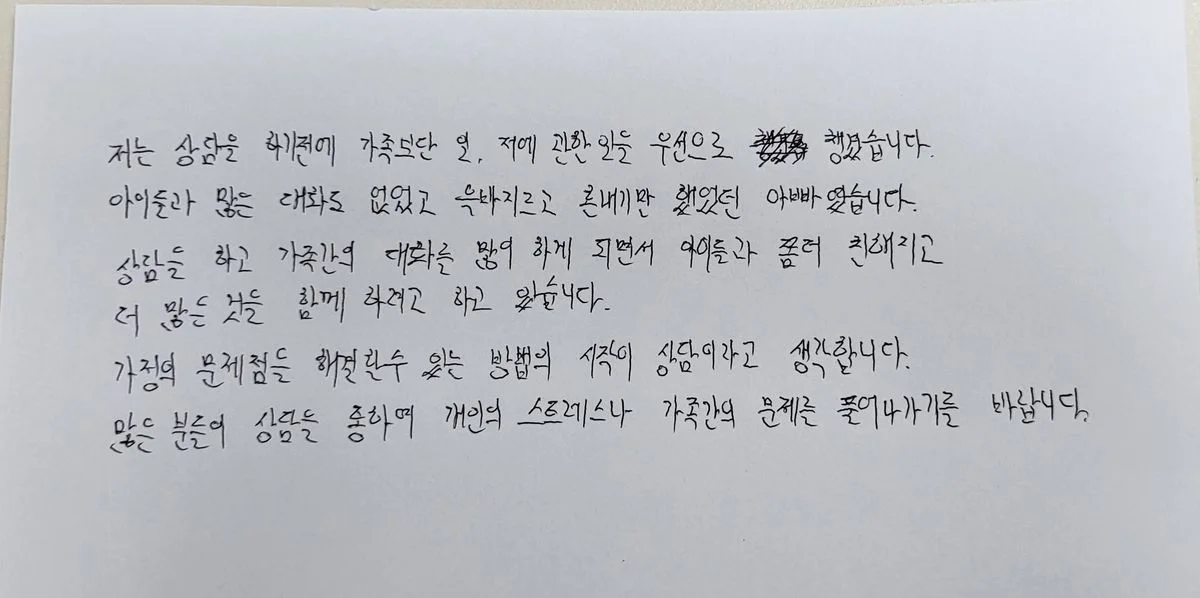 저는 상담을 하기전에 가족보단 일, 저에 관한 일을 우선으로 챙겼습니다.
아이들과 많은 대화도 없었고 윽박지르고 혼내기만 했었던 아빠였습니다.
상담을 하고 가족간의 대화를 많이 하게 되면서 아이들과 좀더 친해지고
더 많은 것을 함께 하려고 하고 있습니다.
가정의 문제점을 해결할수 있는 방법의 시작이 상담이라고 생각합니다.
많은 분들이 상담을 통하여 개인의 스트레스나 가족간의 문제를 풀어나가기를 바랍니다.